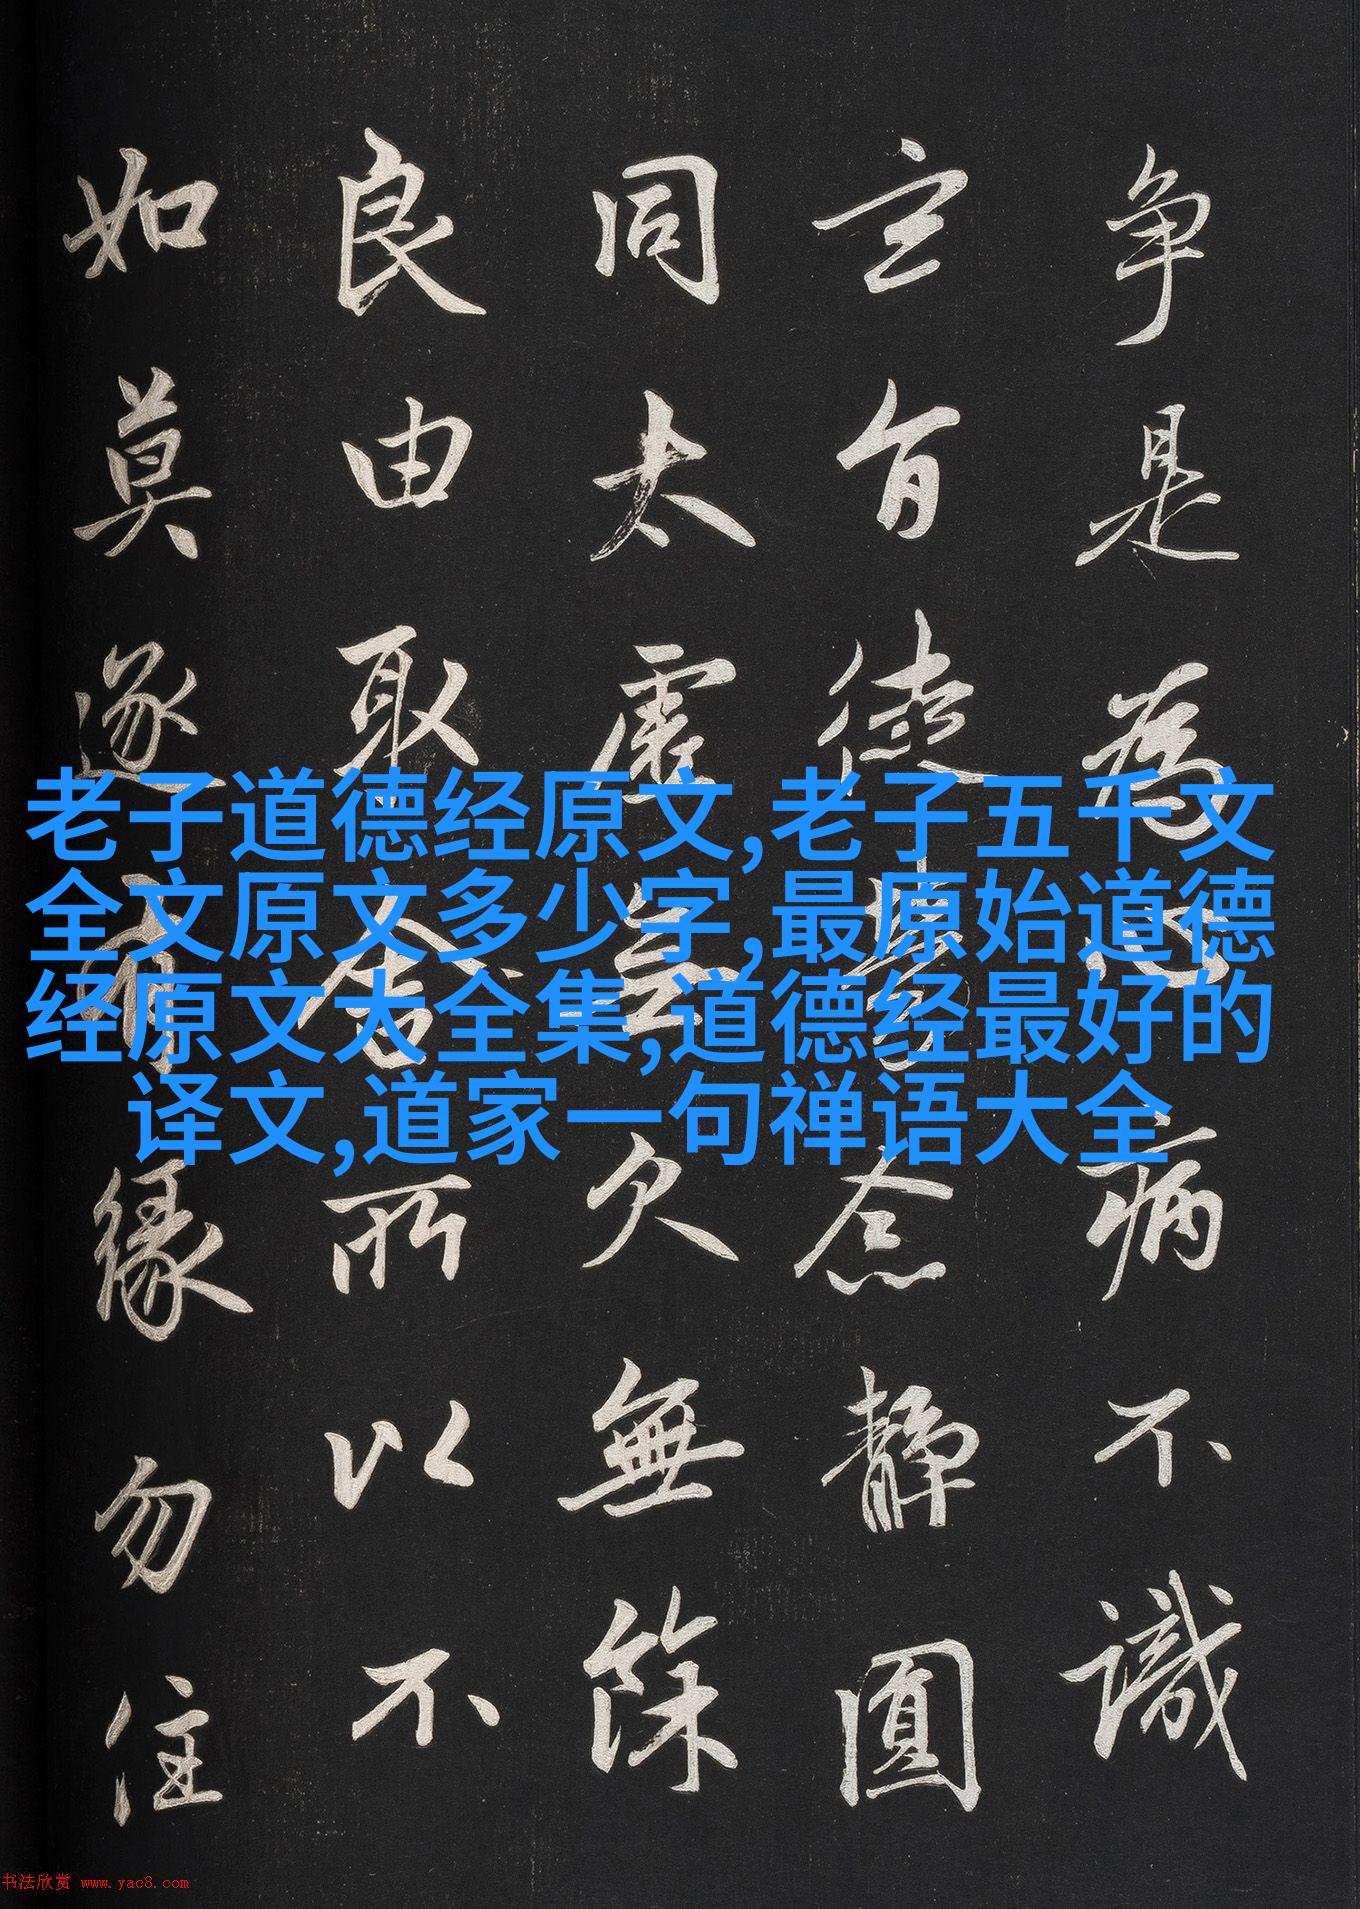 争是為心病不識
玄旨徒勞念靜圓
同太虛無欠無餘
良由取舍所以不
如莫逐有緣勿住
老子道德经原文,老子五千文
全文原文多少字,最原始道德
经原文大全集,道德经最好的
译文,道家一句禅语大全
书法欣赏 www.yac8.com